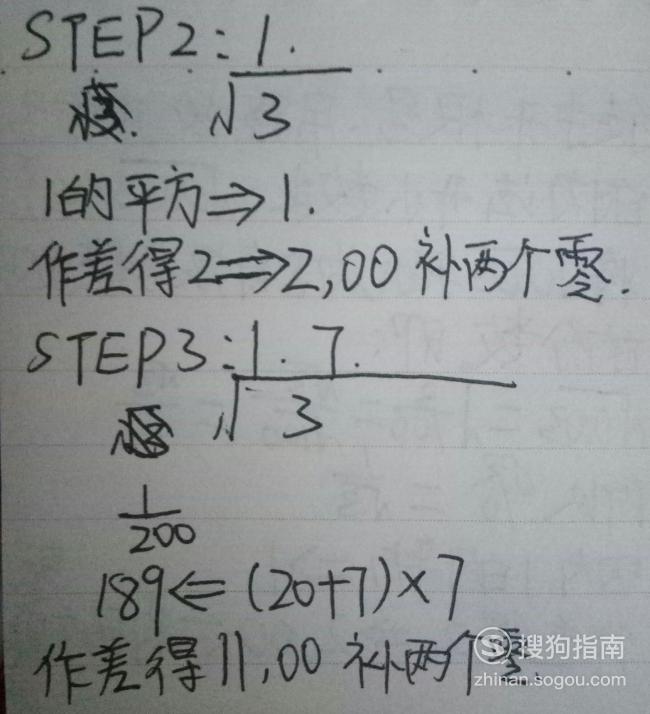 STEP2: 1.
√3
1的平方⇒1.
作差得2⇒2,00 补两个零.
STEP3: 1.7.
√3
1
200
189⇐(20+7)×7
作差得11,00 补两个零.
搜狗指南
zhinan.sogou.com